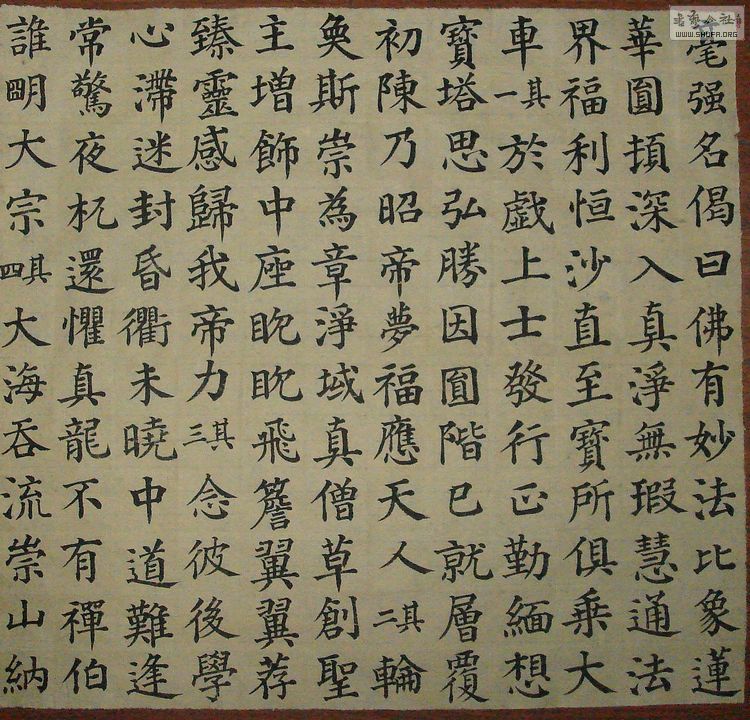 毫强名偈曰佛有妙法比象蓮
華圓頓深入真淨無瑕慧通法
界福利恒沙直至寶所俱乘大
車其一於戲上士發行正勤緬想
寶塔思弘勝因圓階已就層覆
初陳乃昭帝夢福應天人其二輪
奐斯崇為章淨域真僧草創聖
主增飾中座眈眈飛簷翼翼荐
臻靈感歸我帝力其三念彼後學
心滯迷封昏衢未曉中道難逢
常驚夜杌還懼真龍不有禪伯
誰明大宗其四大海吞流崇山納
www.SHUFA.ORG